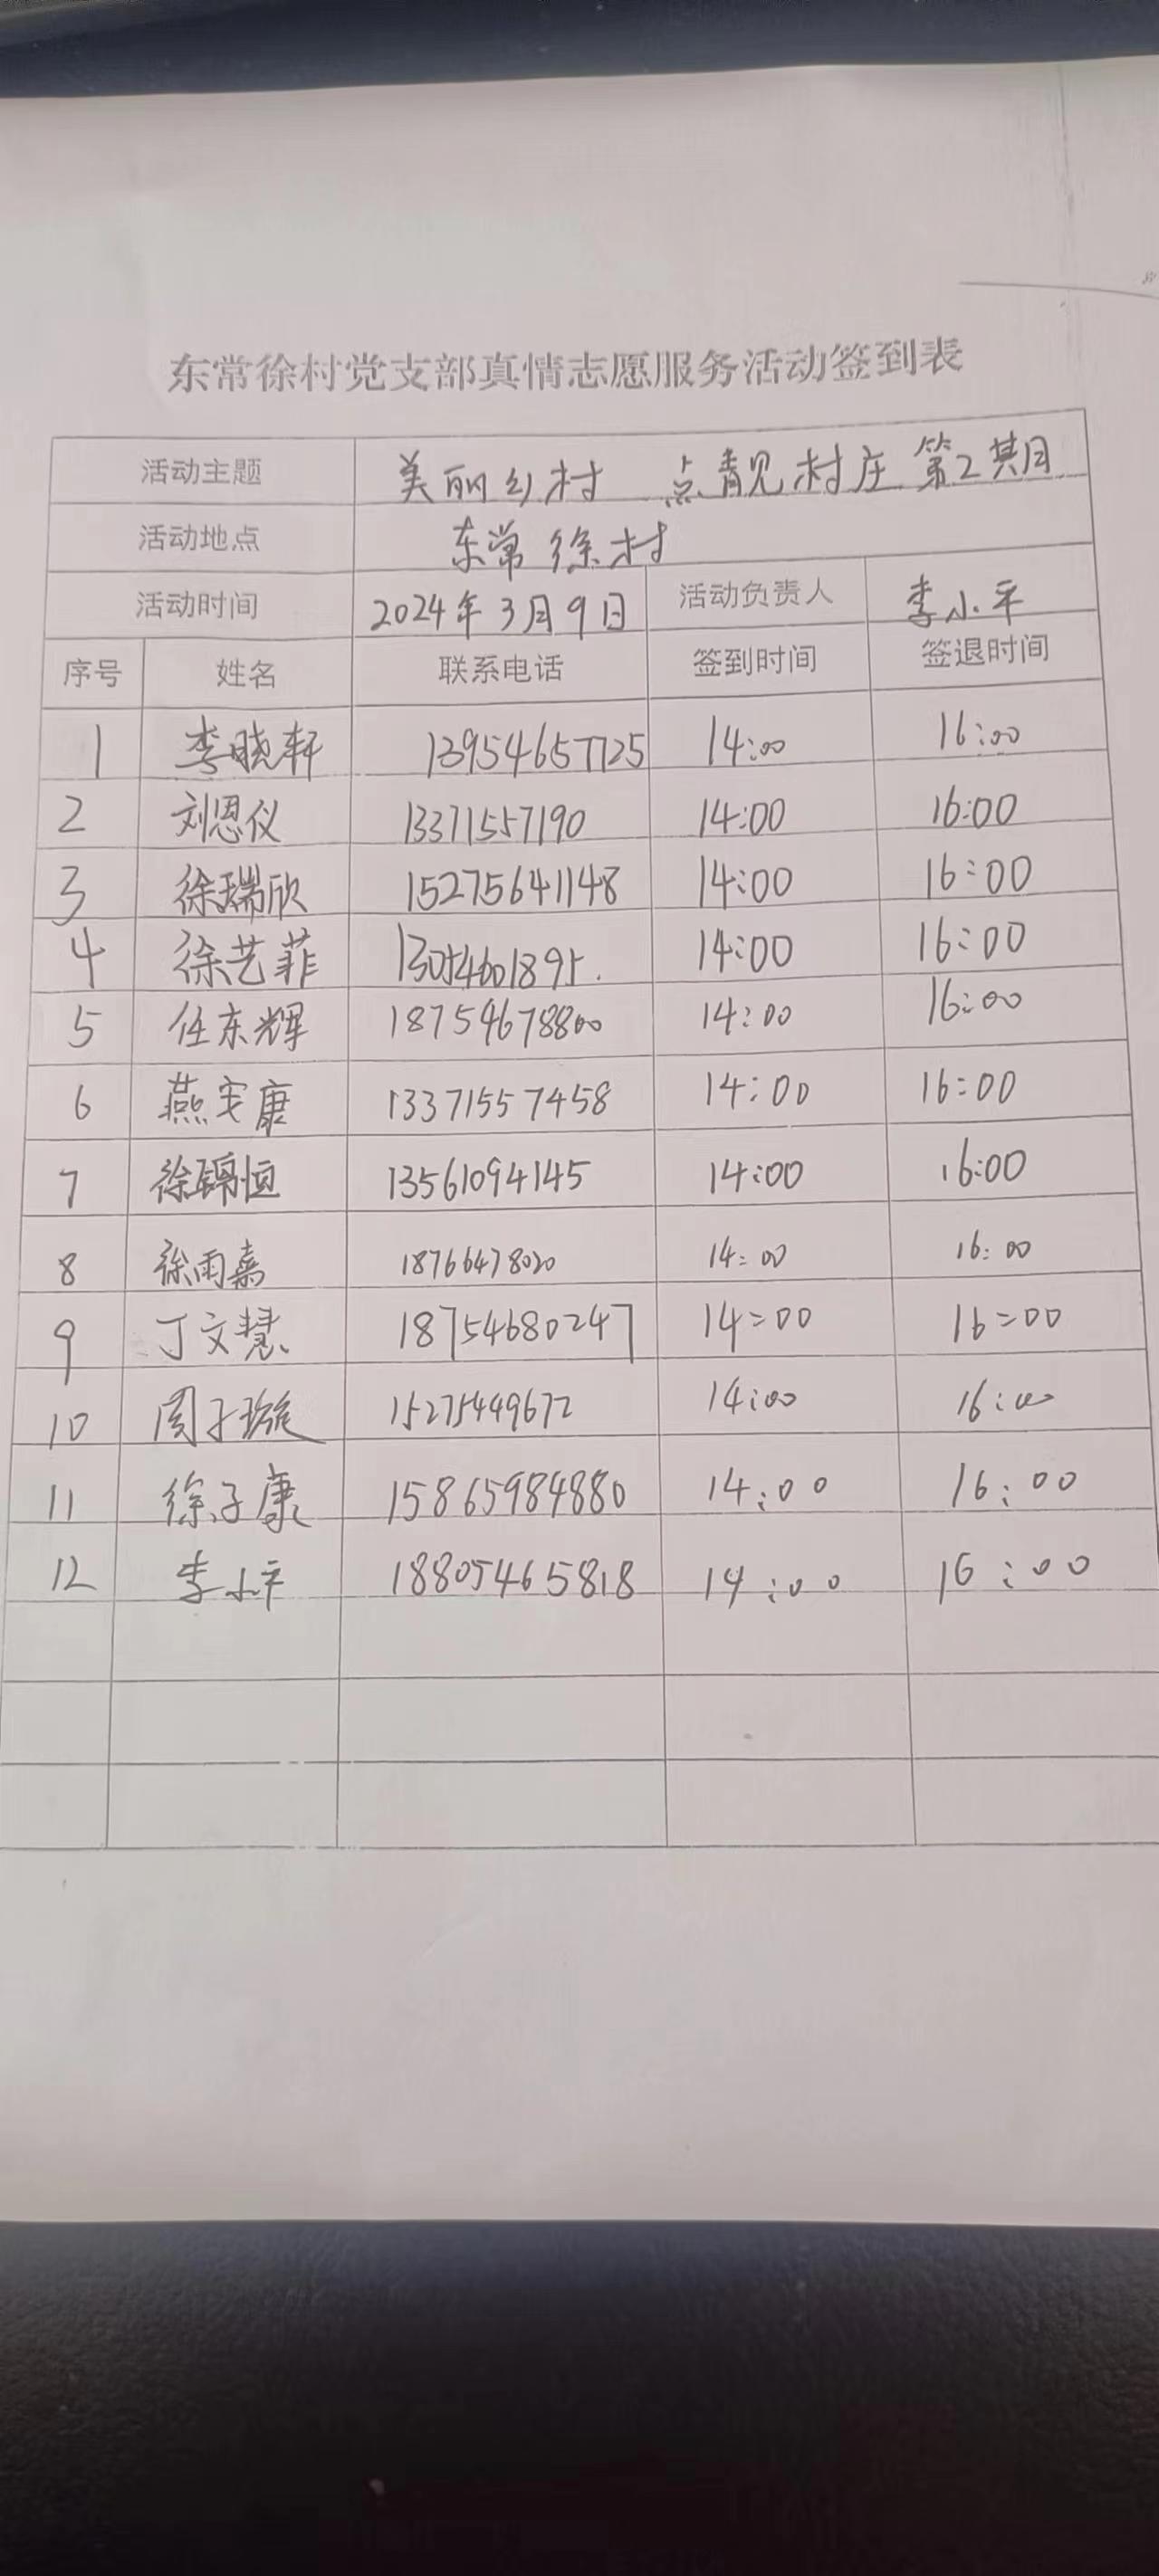 东常徐村党支部真情志愿服务活动签到表
活动主题 美丽乡村 点靓村庄 第2期
活动地点 东常徐村
活动时间 2024年3月9日 活动负责人 李小平
序号 姓名 联系电话 签到时间 签退时间
1 李晓轩 13954657725 14:00 16:00
2 刘恩仪 13371557190 14:00 16:00
3 徐瑞欣 15275641148 14:00 16:00
4 徐艺菲 13054601895. 14:00 16:00
5 任东辉 18754678800 14:00 16:00
6 燕安康 13371557458 14:00 16:00
7 徐锦恒 13561094145 14:00 16:00
8 徐雨嘉 18766478020 14:00 16:00
9 丁文慧 18754680247 14:00 16:00
10 周子璇 15275449672 14:00 16:00
11 徐子康 15865984880 14:00 16:00
12 李小平 18805465818 14:00 16:00